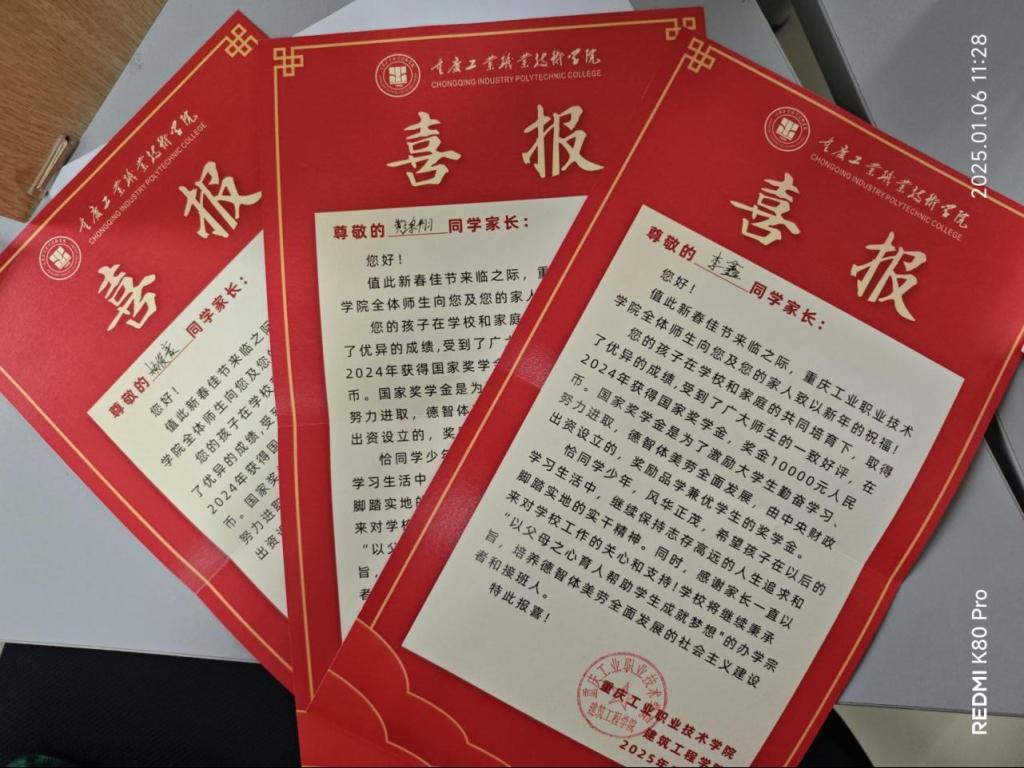 重庆工业职业技术学院
CHONGQING INDUSTRY POLYTECHNIC COLLEGE
喜报
尊敬的
同学家长：
您好！
值此新春佳节来临之际
学院全体师生向您及您的
您的孩子在学校
了优异的成绩,受到
2024年获得国
币。国家奖
努力进取
出资设
重庆工业职业技术学院
CHONGQING INDUSTRY POLYTECHNIC COLLEGE
喜报
尊敬的
同学家长：
您好！
值此新春佳节来临之际，重
学院全体师生向您及您的家人
您的孩子在学校和家庭
了优异的成绩,受到了广大
2024年获得国家奖学金
币。国家奖学金是为
努力进取，德智体
出资设立的，奖
恰同学少年
学习生活中
脚踏实地的
来对学校
“以父
旨，
者
重庆工业职业技术学院
CHONGQING INDUSTRY POLYTECHNIC COLLEGE
喜报
尊敬的 李鑫 同学家长：
您好！
值此新春佳节来临之际，重庆工业职业技术
学院全体师生向您及您的家人致以新年的祝福！
您的孩子在学校和家庭的共同培育下，取得
了优异的成绩,受到了广大师生的一致好评，在
2024年获得国家奖学金，奖金10000元人民
币。国家奖学金是为了激励大学生勤奋学习、
努力进取，德智体美劳全面发展，由中央财政
出资设立的，奖励品学兼优学生的奖学金。
恰同学少年，风华正茂，希望孩子在以后的
学习生活中，继续保持志存高远的人生追求和
脚踏实地的实干精神。同时，感谢家长一直以
来对学校工作的关心和支持!学校将继续秉承
“以父母之心育人帮助学生成就梦想”的办学宗
旨，培养德智体美劳全面发展的社会主义建设
者和接班人。
特此报喜！
重庆工业职业技术学院
建筑工程学院
重庆工业职业技术学院
建筑工程学
2025年
2025.01.06 11:28
REDMI K80 Pro